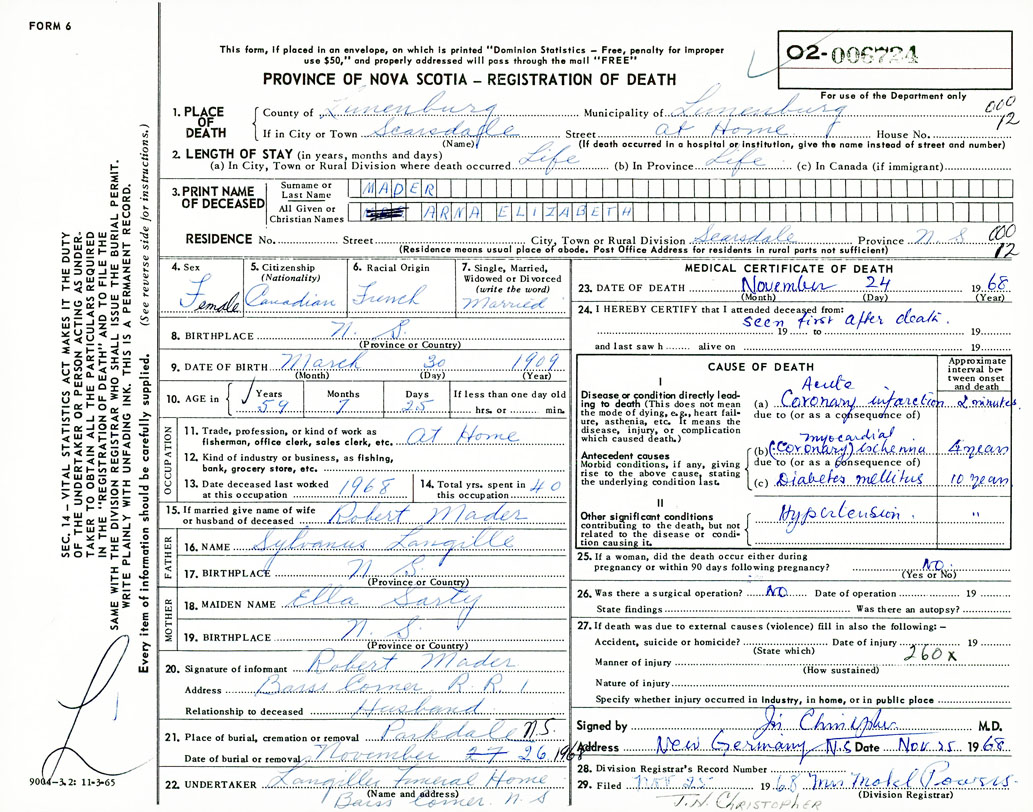 FORM 6
This form, if placed in an envelope, on which is printed "Dominion Statistics – Free, penalty for improper
use $50," and properly addressed will pass through the mail "FREE"
PROVINCE OF NOVA SCOTIA – REGISTRATION OF DEATH
02-006724
For use of the Department only
000
12
1. PLACE OF DEATH
County of Lunenburg Municipality of Lunenburg
If in City or Town Scarsdale Street at Home House No.
(Name) (If death occurred in a hospital or institution, give the name instead of street and number)
2. LENGTH OF STAY (in years, months and days)
(a) In City, Town or Rural Division where death occurred Life (b) In Province Life (c) In Canada (if immigrant)
3. PRINT NAME OF DECEASED
Surname or Last Name MADER
All Given or Christian Names ARNA ELIZABETH
RESIDENCE No. Street City, Town or Rural Division Scarsdale Province N. S 000
(Residence means usual place of abode. Post Office Address for residents in rural parts not sufficient) 12
4. Sex Female
5. Citizenship (Nationality) Canadian
6. Racial Origin French
7. Single, Married, Widowed or Divorced (write the word) Married
8. BIRTHPLACE N. S.
(Province or Country)
9. DATE OF BIRTH March 30 1909
(Month) (Day) (Year)
10. AGE in Years 59 Months 7 Days 25 If less than one day old hrs. or min.
OCCUPATION
11. Trade, profession, or kind of work as fisherman, office clerk, sales clerk, etc. at Home
12. Kind of industry or business, as fishing, bank, grocery store, etc.
13. Date deceased last worked at this occupation 1968
14. Total yrs. spent in this occupation 40
15. If married give name of wife or husband of deceased Robert Mader
FATHER
16. NAME Sylvanus Langille
17. BIRTHPLACE N. S.
(Province or Country)
MOTHER
18. MAIDEN NAME Ella Sarty
19. BIRTHPLACE N. S.
(Province or Country)
20. Signature of informant Robert Mader
Address Barss Corner R. R. 1
Relationship to deceased Husband
21. Place of burial, cremation or removal Parkdale N.S.
Date of burial or removal November 27 26 1968
22. UNDERTAKER Langilles Funeral Home
(Name and address) Barss Corner. N. S
MEDICAL CERTIFICATE OF DEATH
23. DATE OF DEATH November 24 1968
(Month) (Day) (Year)
24. I HEREBY CERTIFY that I attended deceased from:
seen first after death.
19 to 19
and last saw h alive on 19
CAUSE OF DEATH
Approximate interval between onset and death
I
Disease or condition directly leading to death (This does not mean the mode of dying, e.g., heart failure, asthenia, etc. It means the disease, injury, or complication which caused death.)
Acute
(a) Coronary infarction 2 minutes
due to (or as a consequence of)
Antecedent causes
Morbid conditions, if any, giving rise to the above cause, stating the underlying condition last.
myocardial
(b) (Coronary) ischemia 4 years
due to (or as a consequence of)
(c) Diabetes mellitus 10 years
II
Other significant conditions contributing to the death, but not related to the disease or condition causing it.
Hypertension. "
25. If a woman, did the death occur either during pregnancy or within 90 days following pregnancy? NO.
(Yes or No)
26. Was there a surgical operation? NO Date of operation 19
State findings Was there an autopsy?
27. If death was due to external causes (violence) fill in also the following: –
Accident, suicide or homicide? Date of injury 19
(State which) 260x
Manner of injury
(How sustained)
Nature of injury
Specify whether injury occurred in Industry, in home, or in public place
Signed by Christopher M.D.
Address New Germany N.S Date Nov. 25 1968
28. Division Registrar's Record Number
29. Filed Nov 25 1968 Mrs Powers
(Division Registrar)
J. N. CHRISTOPHER
SEC. 14 – VITAL STATISTICS ACT MAKES IT THE DUTY
OF THE UNDERTAKER OR PERSON ACTING AS UNDER-
TAKER TO OBTAIN ALL THE PARTICULARS REQUIRED
IN THE "REGISTRATION OF DEATH" AND TO FILE THE
SAME WITH THE DIVISION REGISTRAR WHO SHALL ISSUE THE BURIAL PERMIT.
WRITE PLAINLY WITH UNFADING INK. THIS IS A PERMANENT RECORD.
Every item of information should be carefully supplied. (See reverse side for instructions.)
9004-3.2: 11-3-65